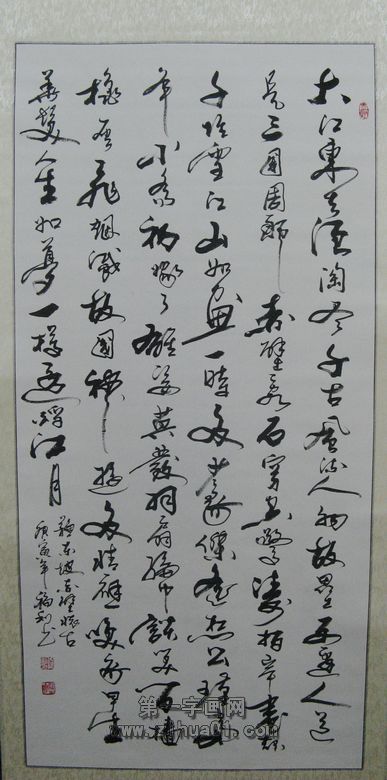 大江東去浪淘盡千古風流人物故壘西邊人道
是三國周郎赤壁亂石穿空驚濤拍岸卷起
千堆雪江山如畫一時多少豪傑遙想公瑾當
年小喬初嫁了雄姿英發羽扇綸巾談笑間檣
櫓灰飛烟滅故國神遊多情應笑我早生
華髮人生如夢一樽還酹江月
蘇東坡赤壁懷古
庚寅年福利書
第一字画网
www.zihua01.com